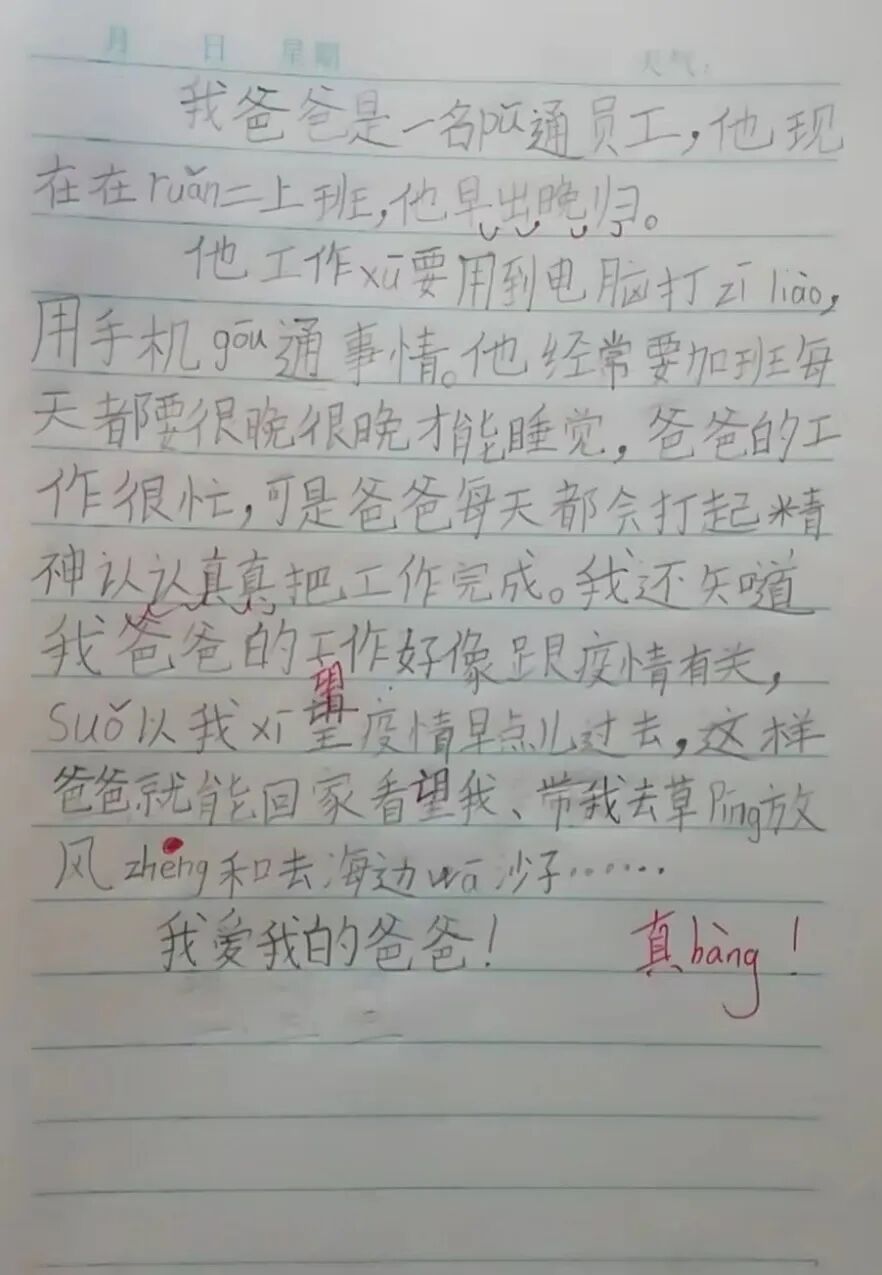 月 日 星期 天气：
我爸爸是一名pǔ通员工，他现
在在ruǎn二上班，他早出晚归。
他工作xū要用到电脑打zī liào，
用手机gōu通事情。他经常要加班每
天都要很晚很晚才能睡觉，爸爸的工
作很忙，可是爸爸每天都会打起精
神认认真真把工作完成。我还知道
我爸爸的工作好像跟疫情有关，
suǒ以我xī望疫情早点儿过去，这样
爸爸就能回家看望我、带我去草Píng放
风zhēng和去海边wā沙子……
我爱我的爸爸！
真bàng！